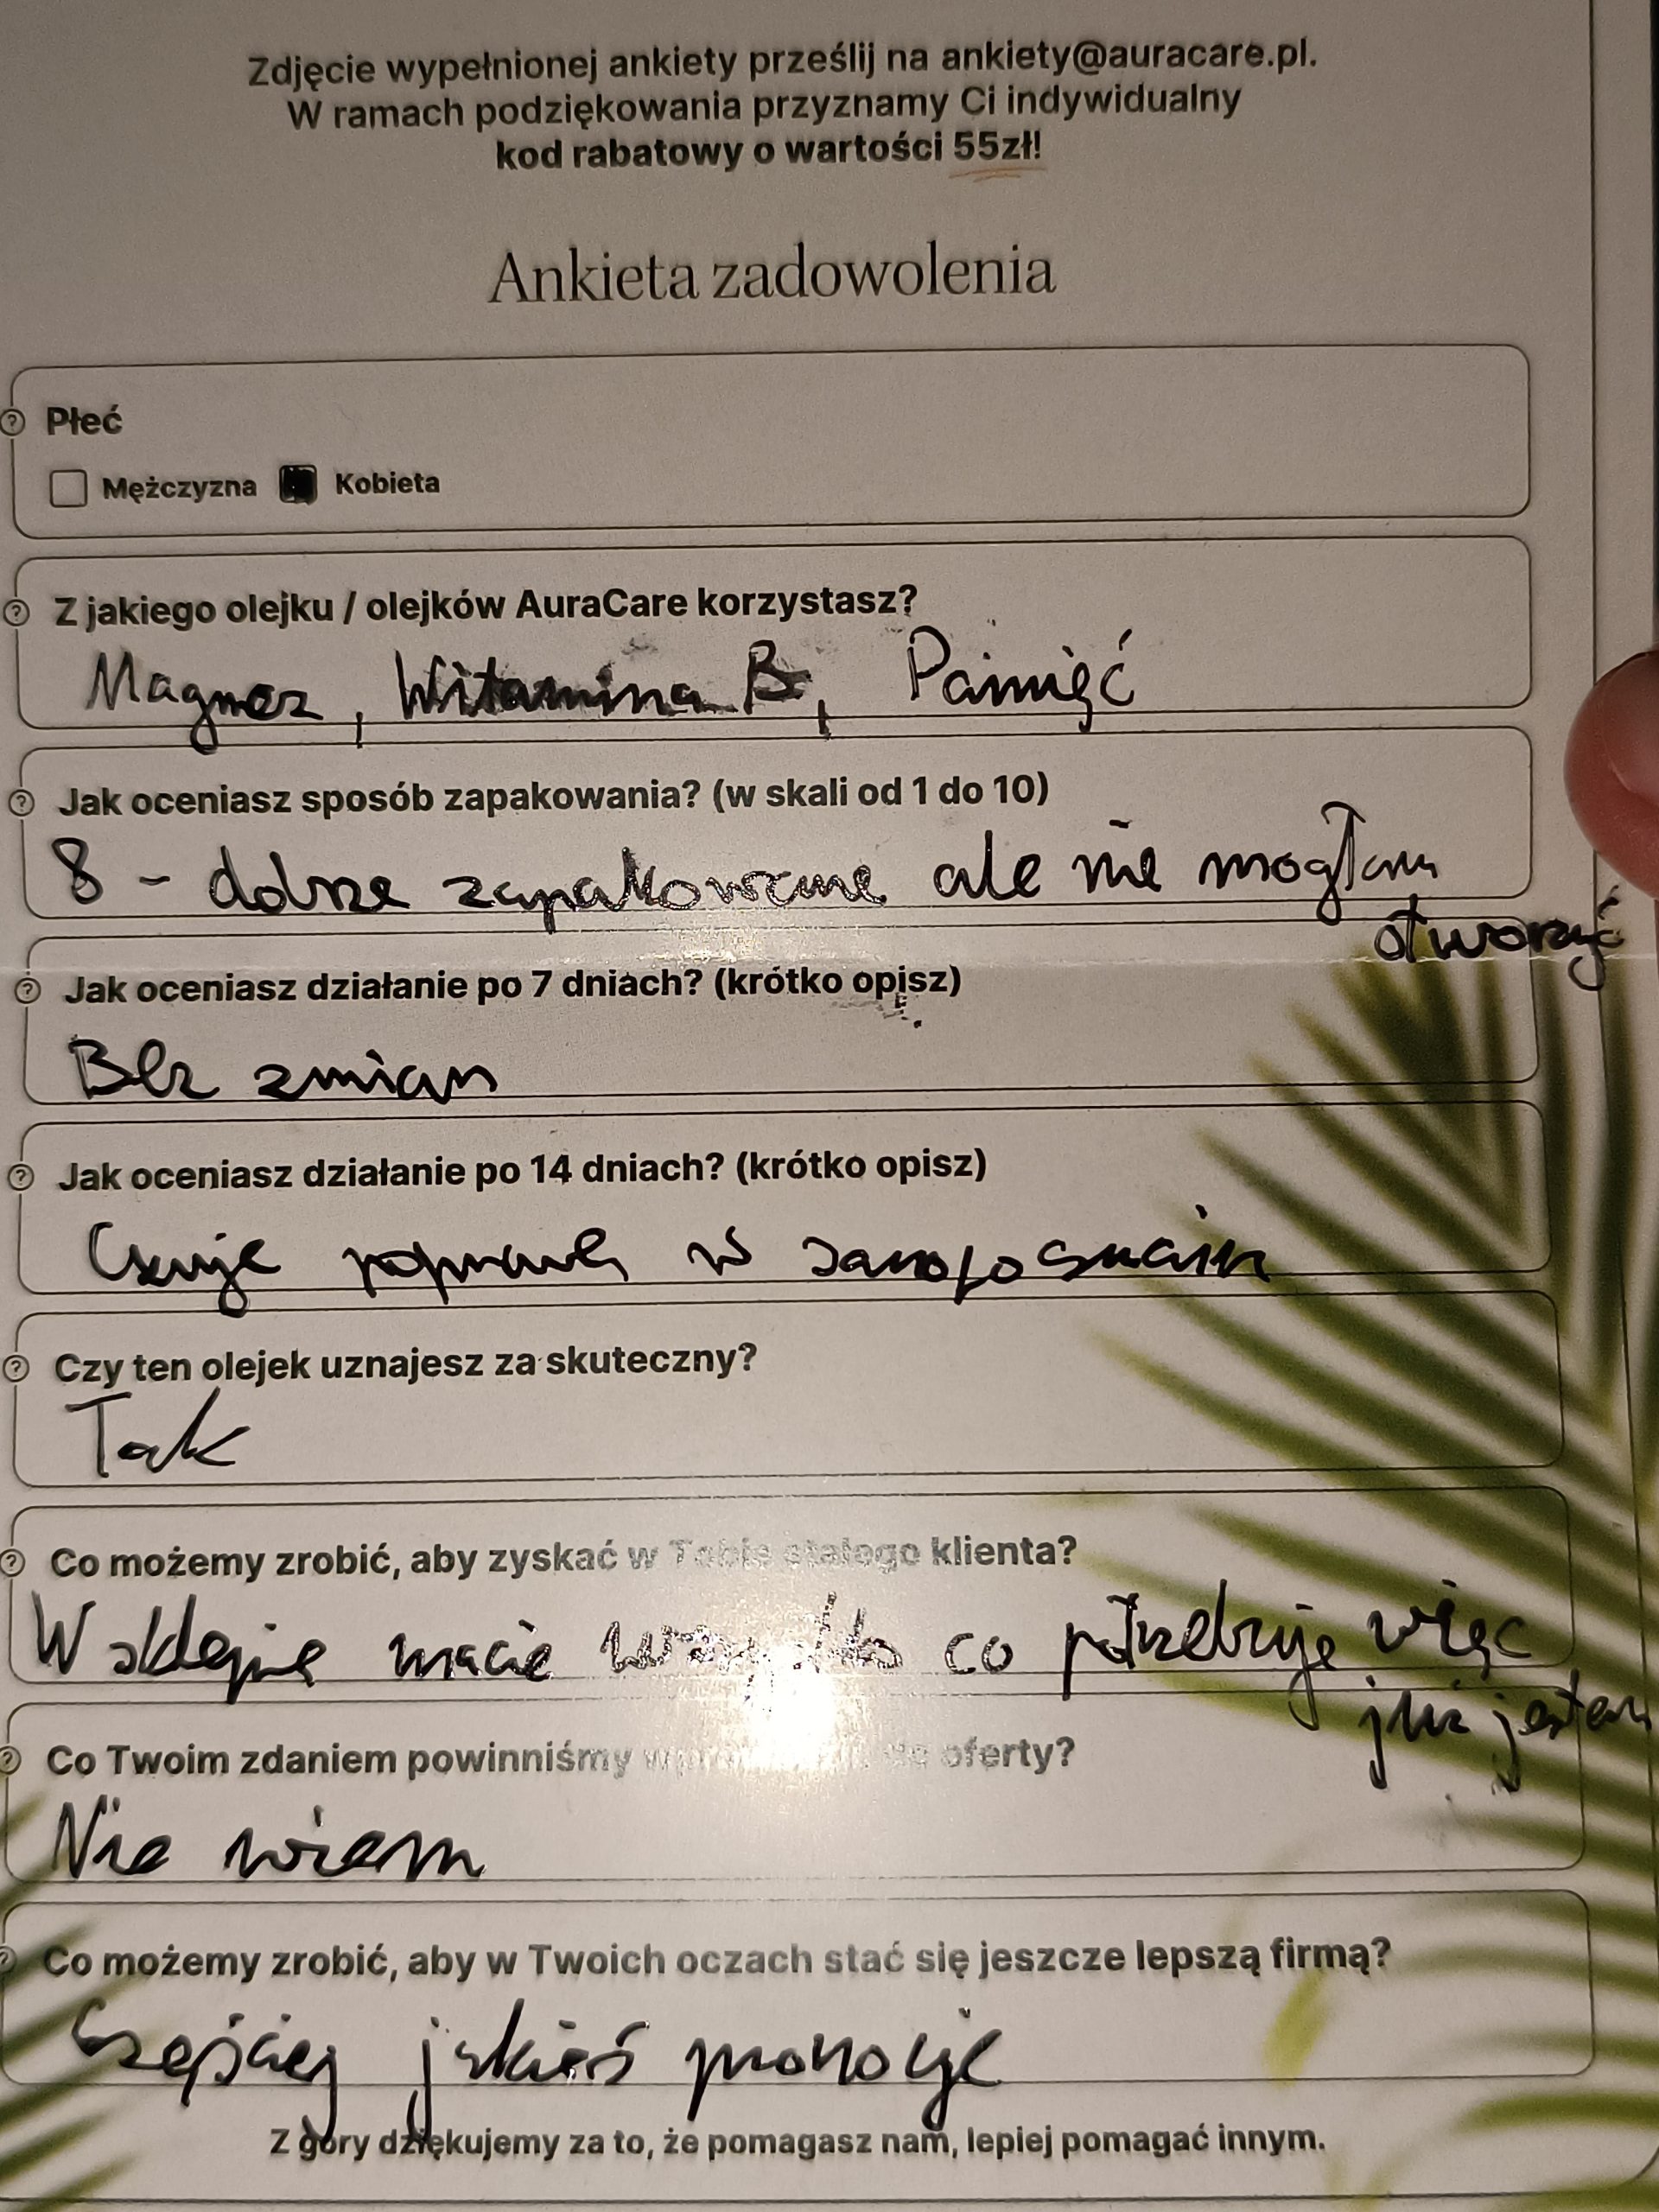 Zdjęcie wypełnionej ankiety prześlij na ankiety@auracare.pl.
W ramach podziękowania przyznamy Ci indywidualny
kod rabatowy o wartości 55zł!
Ankieta zadowolenia
Płeć
Mężczyzna Kobieta
Z jakiego olejku / olejków AuraCare korzystasz?
Magnez, Witamina B, Pamięć
Jak oceniasz sposób zapakowania? (w skali od 1 do 10)
8 - dobrze zapakowane ale nie mogłam
otworzyć
Jak oceniasz działanie po 7 dniach? (krótko opisz)
Bez zmian
Jak oceniasz działanie po 14 dniach? (krótko opisz)
Czuje poprawę w samopoczuciu
Czy ten olejek uznajesz za skuteczny?
Tak
Co możemy zrobić, aby zyskać w Tobie stałego klienta?
W sklepie macie wszystko co potrzebuje więc
już jestem
Co Twoim zdaniem powinniśmy do oferty?
Nie wiem
Co możemy zrobić, aby w Twoich oczach stać się jeszcze lepszą firmą?
Częściej jakieś promocje
Z góry dziękujemy za to, że pomagasz nam, lepiej pomagać innym.